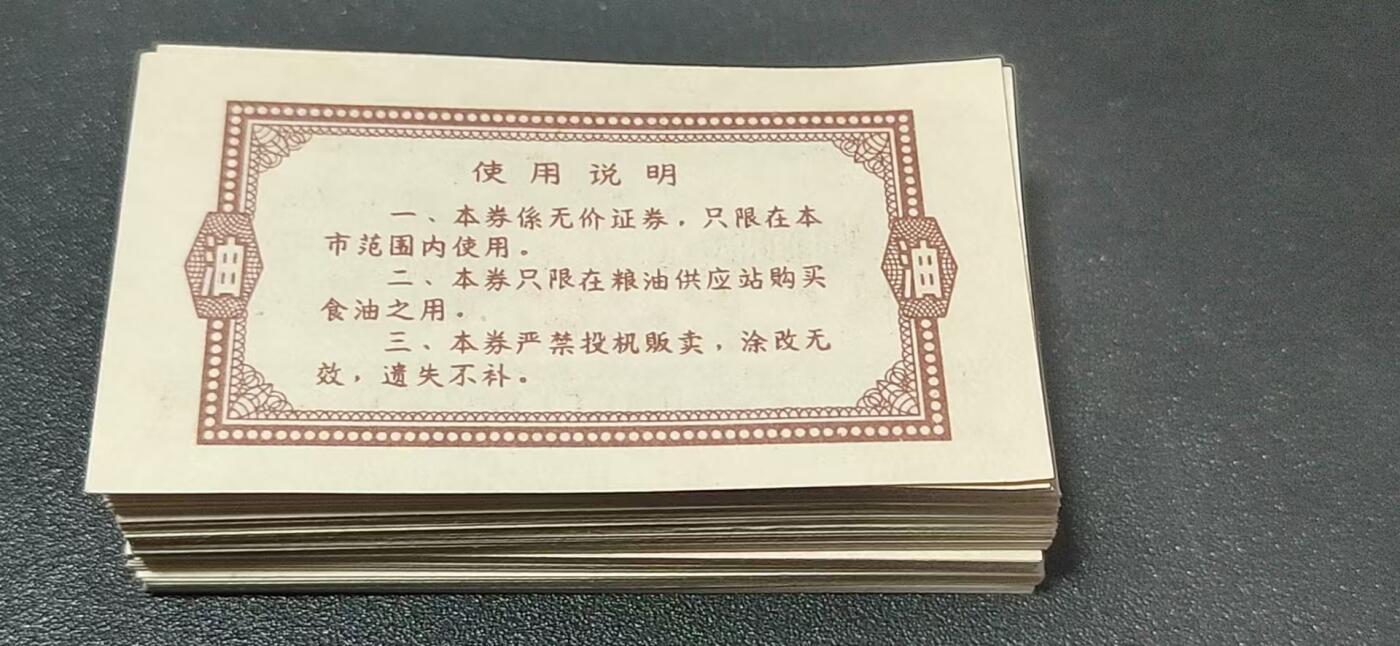 使用说明
一、本券係无价证券，只限在本
市范围内使用。
二、本券只限在粮油供应站购买
食油之用。
三、本券严禁投机贩卖，涂改无
效，遗失不补。
油
油